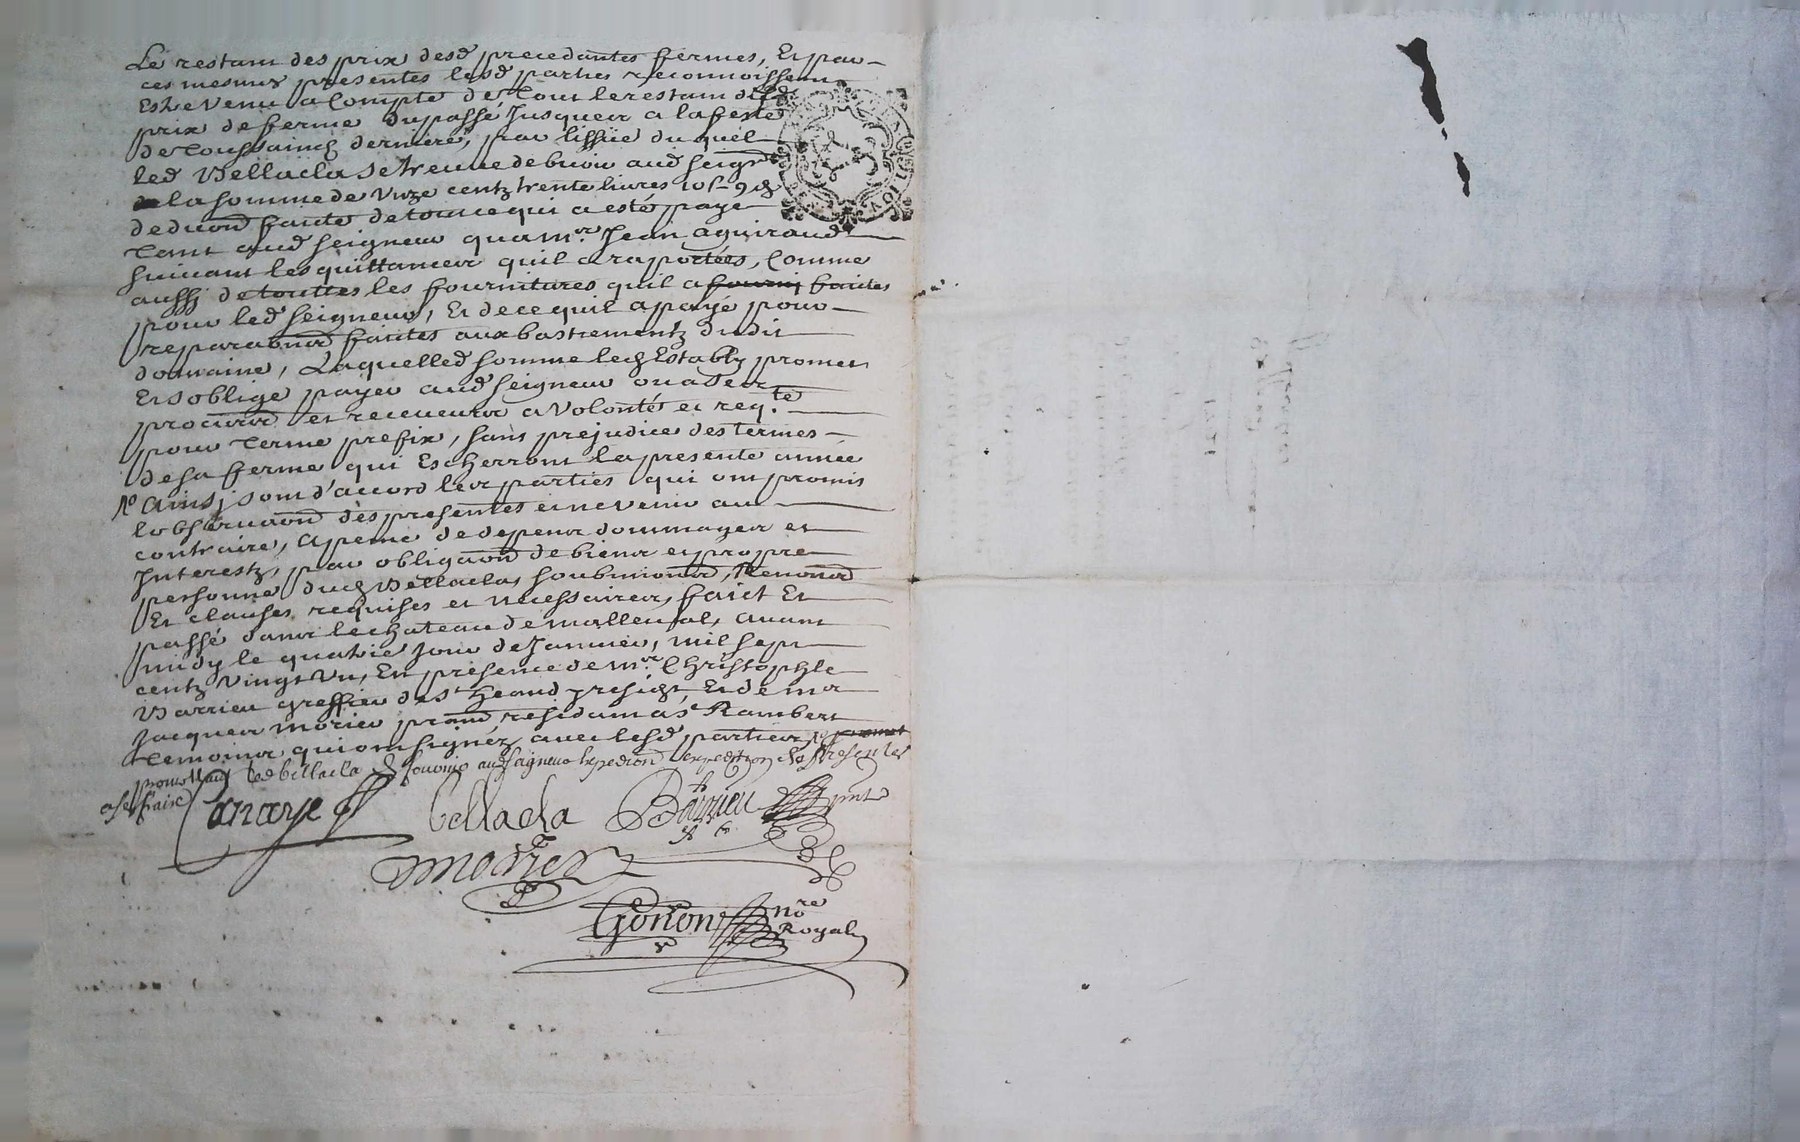 Le restant des prix desd precedantes fermes, Et par
ces mesmes presentes lesd parties reconnoissent
Estre venu a Compte de tout le restant dud
prix de ferme du passé Jusques a la feste
de toussainctz derniere, par lissüe duquel
led Bellacla se treuve debvoir aud seigr
de la somme de Unze centz trente livres 10s 9d
deduaon faite de tout ce qui a esté payé
tant aud seigneur qua mr. Jean aguiraud
suivant les quittances quil a raportées, Comme
aussj de touttes les fournitures quil a fournj faites
pour led seigneur, Et de ce quil a payé pour
reparaons faites aux bastimentz dudit
domaine, Laquelled somme led Estably promet
Et soblige payer aud seigneur ou a ses
procurs et receveurs a volonté et reqte.
pour terme prefix, sans prejudice des termes
de sa ferme qui Escherront la presente année
Ainsj sont d'accord les parties qui ont promis
lobservaon des presentes et ne venir au
contraire, a peine de depens dommages et
Interestz, par obligaon de biens et propre
personne dud Bellacla, soubmions, Renons
Et clauses requises et necessaires, faict Et
passé dans le chateau de malleval, avant
midy le quatrie jour de Janvier, mil sept
centz vingt Un, En presence de mre Christophle
Barrieu greffier de St heand presidt, Et de mr
Jacques morier prand residant a St Rambert
temoins, qui ont signéz avec lesd parties,
promettant led bellacla de fournir aud seigneur Expedition des Presentes
a ses fraix
Bellacla Barrieu pnt
morier
Gonon nore
Royal